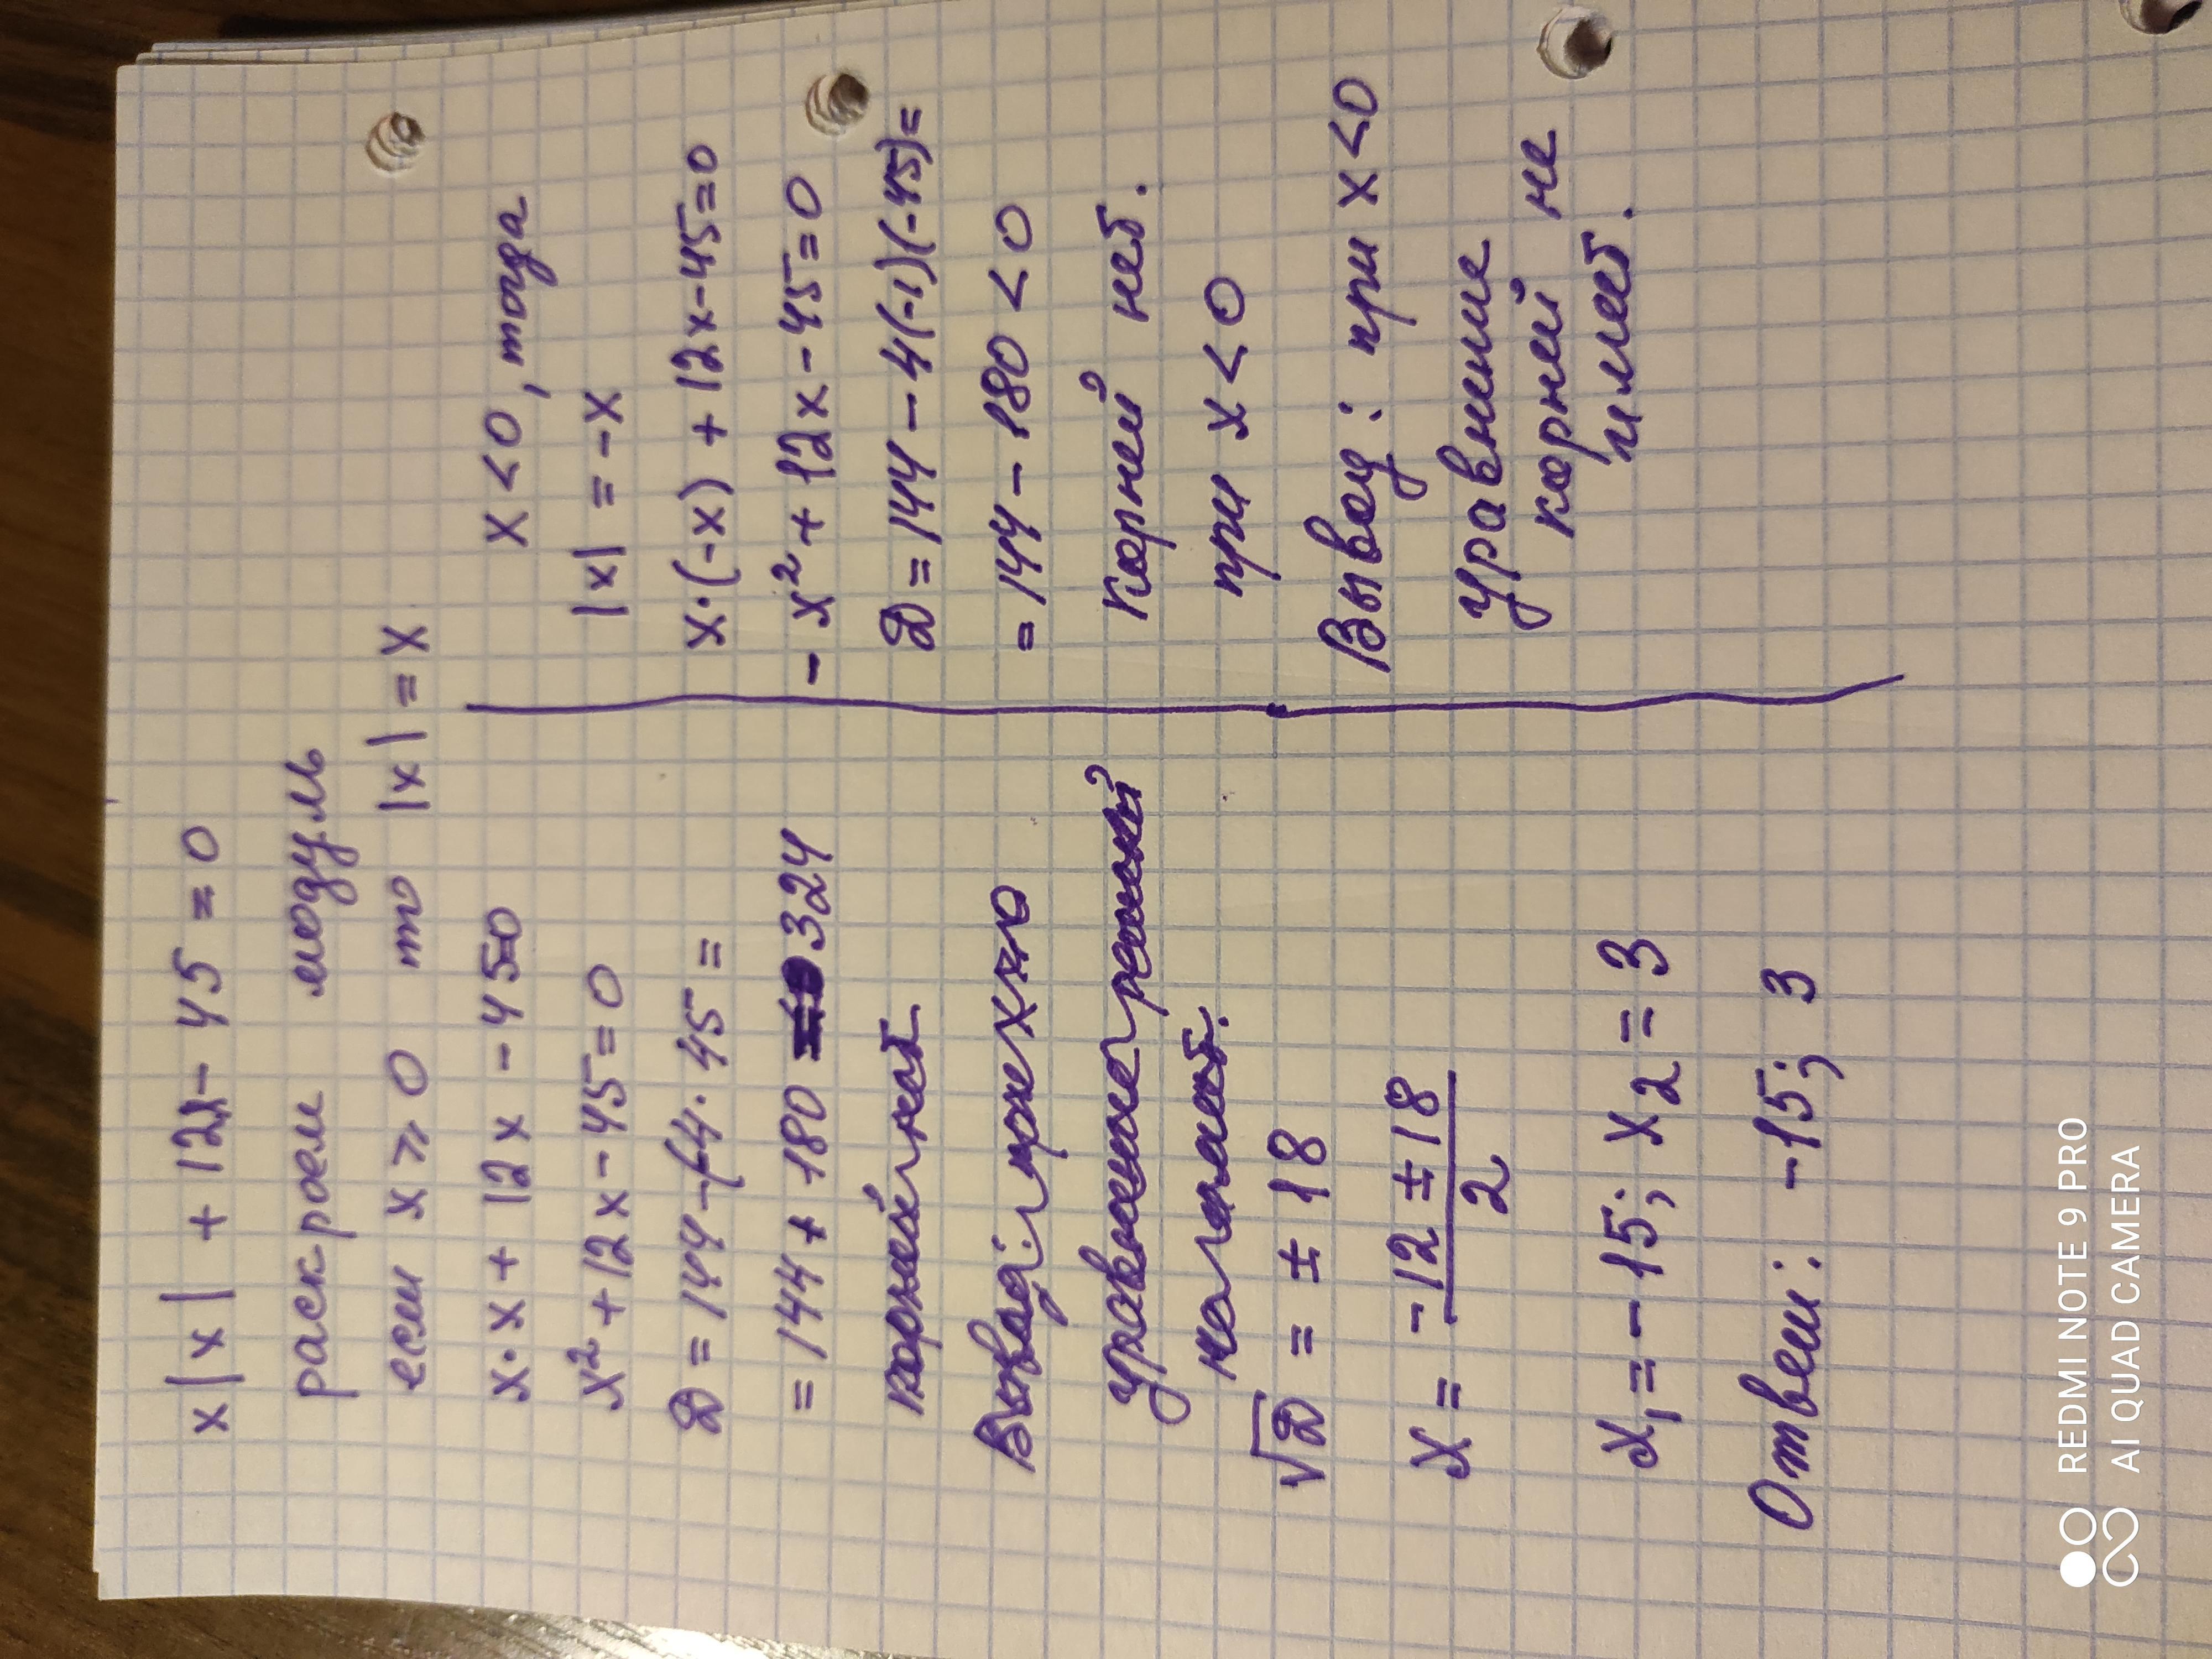 x|x| + 12x - 45 = 0
раскроем модуль
если x ≥ 0 то |x| = x
x·x + 12x - 45=0
x² + 12x - 45 = 0
D = 144 - (-4·45 =
= 144 + 180 = 324
корней нет.
Вывод: при x>0
уравнение решений
не имеет.
√D = ± 18
x = -12 ± 18 / 2
x₁ = -15; x₂ = 3
Ответ: -15; 3
x < 0, тогда
|x| = -x
x·(-x) + 12x - 45 = 0
- x² + 12x - 45 = 0
D = 144 - 4(-1)(-45) =
= 144 - 180 < 0
корней нет.
при x < 0
Вывод: при x < 0
уравнение
корней не
имеет.
REDMI NOTE 9 PRO
AI QUAD CAMERA